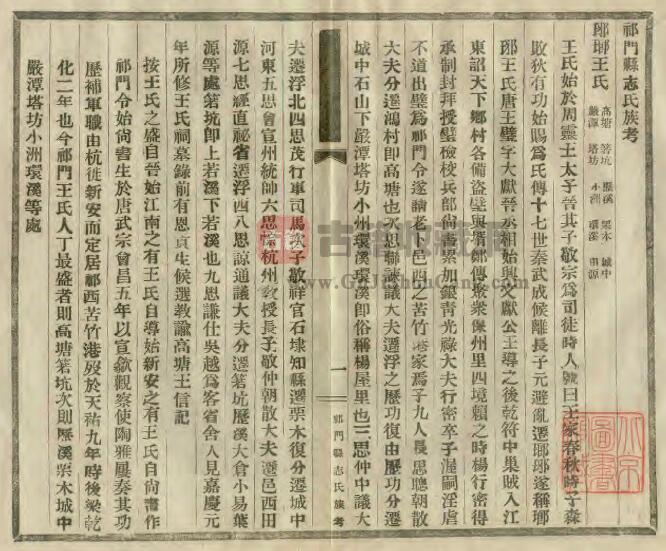 祁門縣志氏族考
瑯琊王氏 高塘 箬坑 歷溪 栗木 城中 嚴潭 塔坊 小洲 環溪 田源
王氏始於周靈王太子晉其子敬宗為司徒時人號曰王家春秋時子森
敗狄有功始賜為氏傳十七世秦武成候離長子元避亂遷瑯琊遂稱瑯
琊王氏唐王璧字大獻晉丞相始興文獻公王導之後乾符中巢賊入江
東詔天下鄉村各備盜璧與壻鄭傳聚衆保州里四境賴之時楊行密得
承制封拜授璧檢校兵部尙書累加銀靑光祿大夫行密卒子渥嗣淫虐
不道出璧為祁門令遂請老卜邑西之苦竹港家焉子九人長思聰朝散
大夫分遷鴻村即高塘也次思聯諫議大夫遷浮之歷功復由歷功分遷
城中石山下嚴潭塔坊小州環溪環溪卽俗稱楊屋里也三思仲中議大
夫遷浮北四思茂行軍司馬次子敬祥官石埭知縣遷栗木復分遷城中
河東五思會宣州統帥六思 杭州敎授長子敬仲朝散大夫遷邑西田
源七思經直祕省遷浮西八思諒通議大夫分遷箬坑歷溪大倉小易葉
源等處箬坑卽上若溪下若溪也九思謙仕吳越為客省舍人見嘉慶元
年所修王氏祠墓錄前有恩貢生候選敎諭高塘王信記
按王氏之盛自晉始江南之有王氏自導始新安之有王氏自尙書作
祁門令始尙書生於唐武宗會昌五年以宣歙觀察使陶雅屢奏其功
歷補軍職由杭徙新安而定居祁西苦竹港歿於天祐九年時後梁乾
化二年也今祁門王氏人丁最盛者則高塘箬坑次則歷溪栗木城中
嚴潭塔坊小洲環溪等處
一
祁門縣志氏族考